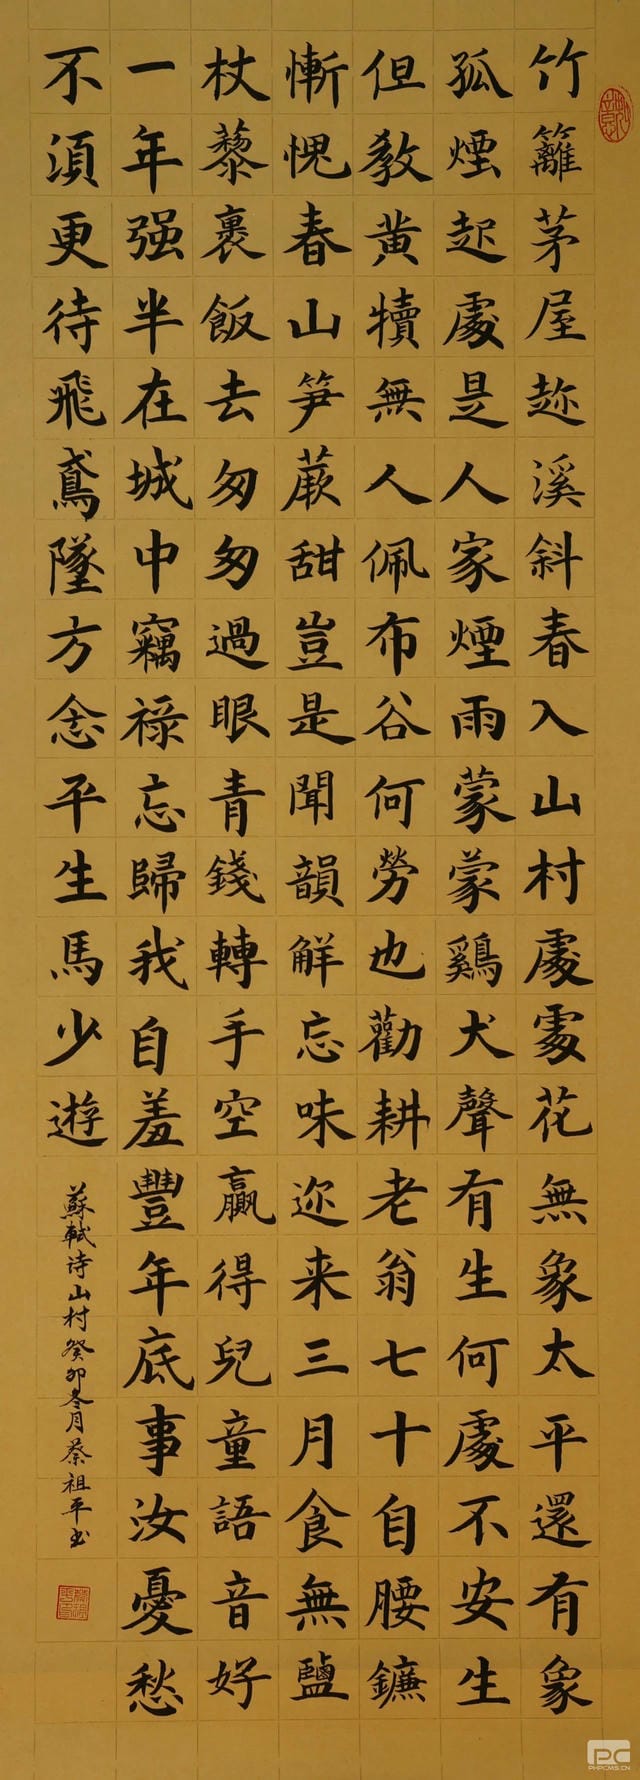 竹籬茅屋趂溪斜春入山村處處花無象太平還有象
孤煙起處是人家煙雨蒙蒙鷄犬聲有生何處不安生
但教黄犢無人佩布谷何勞也勸耕老翁七十自腰鐮
慚愧春山笋蕨甜豈是聞韻解忘味迩来三月食無鹽
杖藜裹飯去匆匆過眼青錢轉手空贏得兒童語音好
一年强半在城中竊禄忘歸我自羞豐年底事汝憂愁
不須更待飛鳶墜方念平生馬少遊
蘇軾诗山村癸卯冬月蔡祖平书
PC
PHPCMS.CN